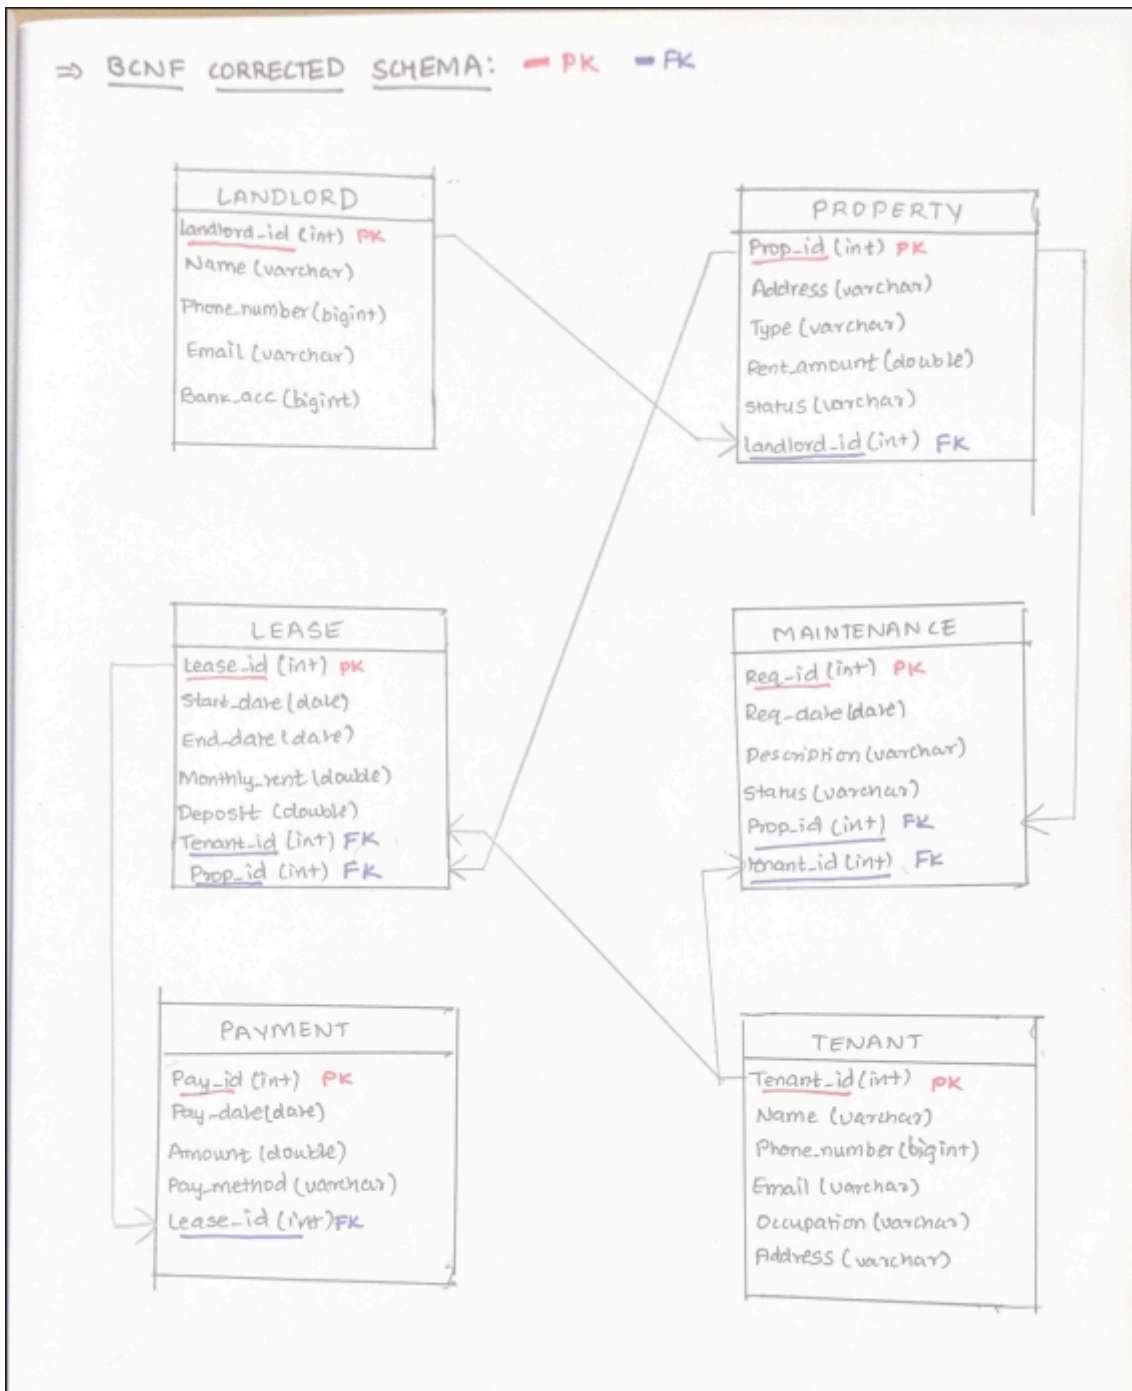 ⇒ BCNF CORRECTED SCHEMA: - PK - FK
LANDLORD
landlord_id (int) PK
Name (varchar)
Phone_number (bigint)
Email (varchar)
Bank_acc (bigint)
PROPERTY
Prop_id (int) PK
Address (varchar)
Type (varchar)
Rent_amount (double)
Status (varchar)
landlord_id (int) FK
LEASE
Lease_id (int) PK
Start_date (date)
End_date (date)
Monthly_rent (double)
Deposit (double)
Tenant_id (int) FK
Prop_id (int) FK
MAINTENANCE
Req_id (int) PK
Req_date (date)
Description (varchar)
Status (varchar)
Prop_id (int) FK
tenant_id (int) FK
PAYMENT
Pay_id (int) PK
Pay_date (date)
Amount (double)
Pay_method (varchar)
Lease_id (int) FK
TENANT
Tenant_id (int) PK
Name (varchar)
Phone_number (bigint)
Email (varchar)
Occupation (varchar)
Address (varchar)